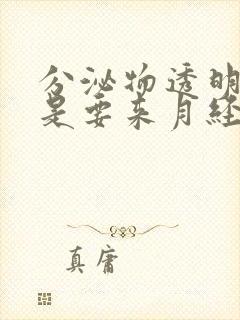 分泌物透明
是要来月经
真庸